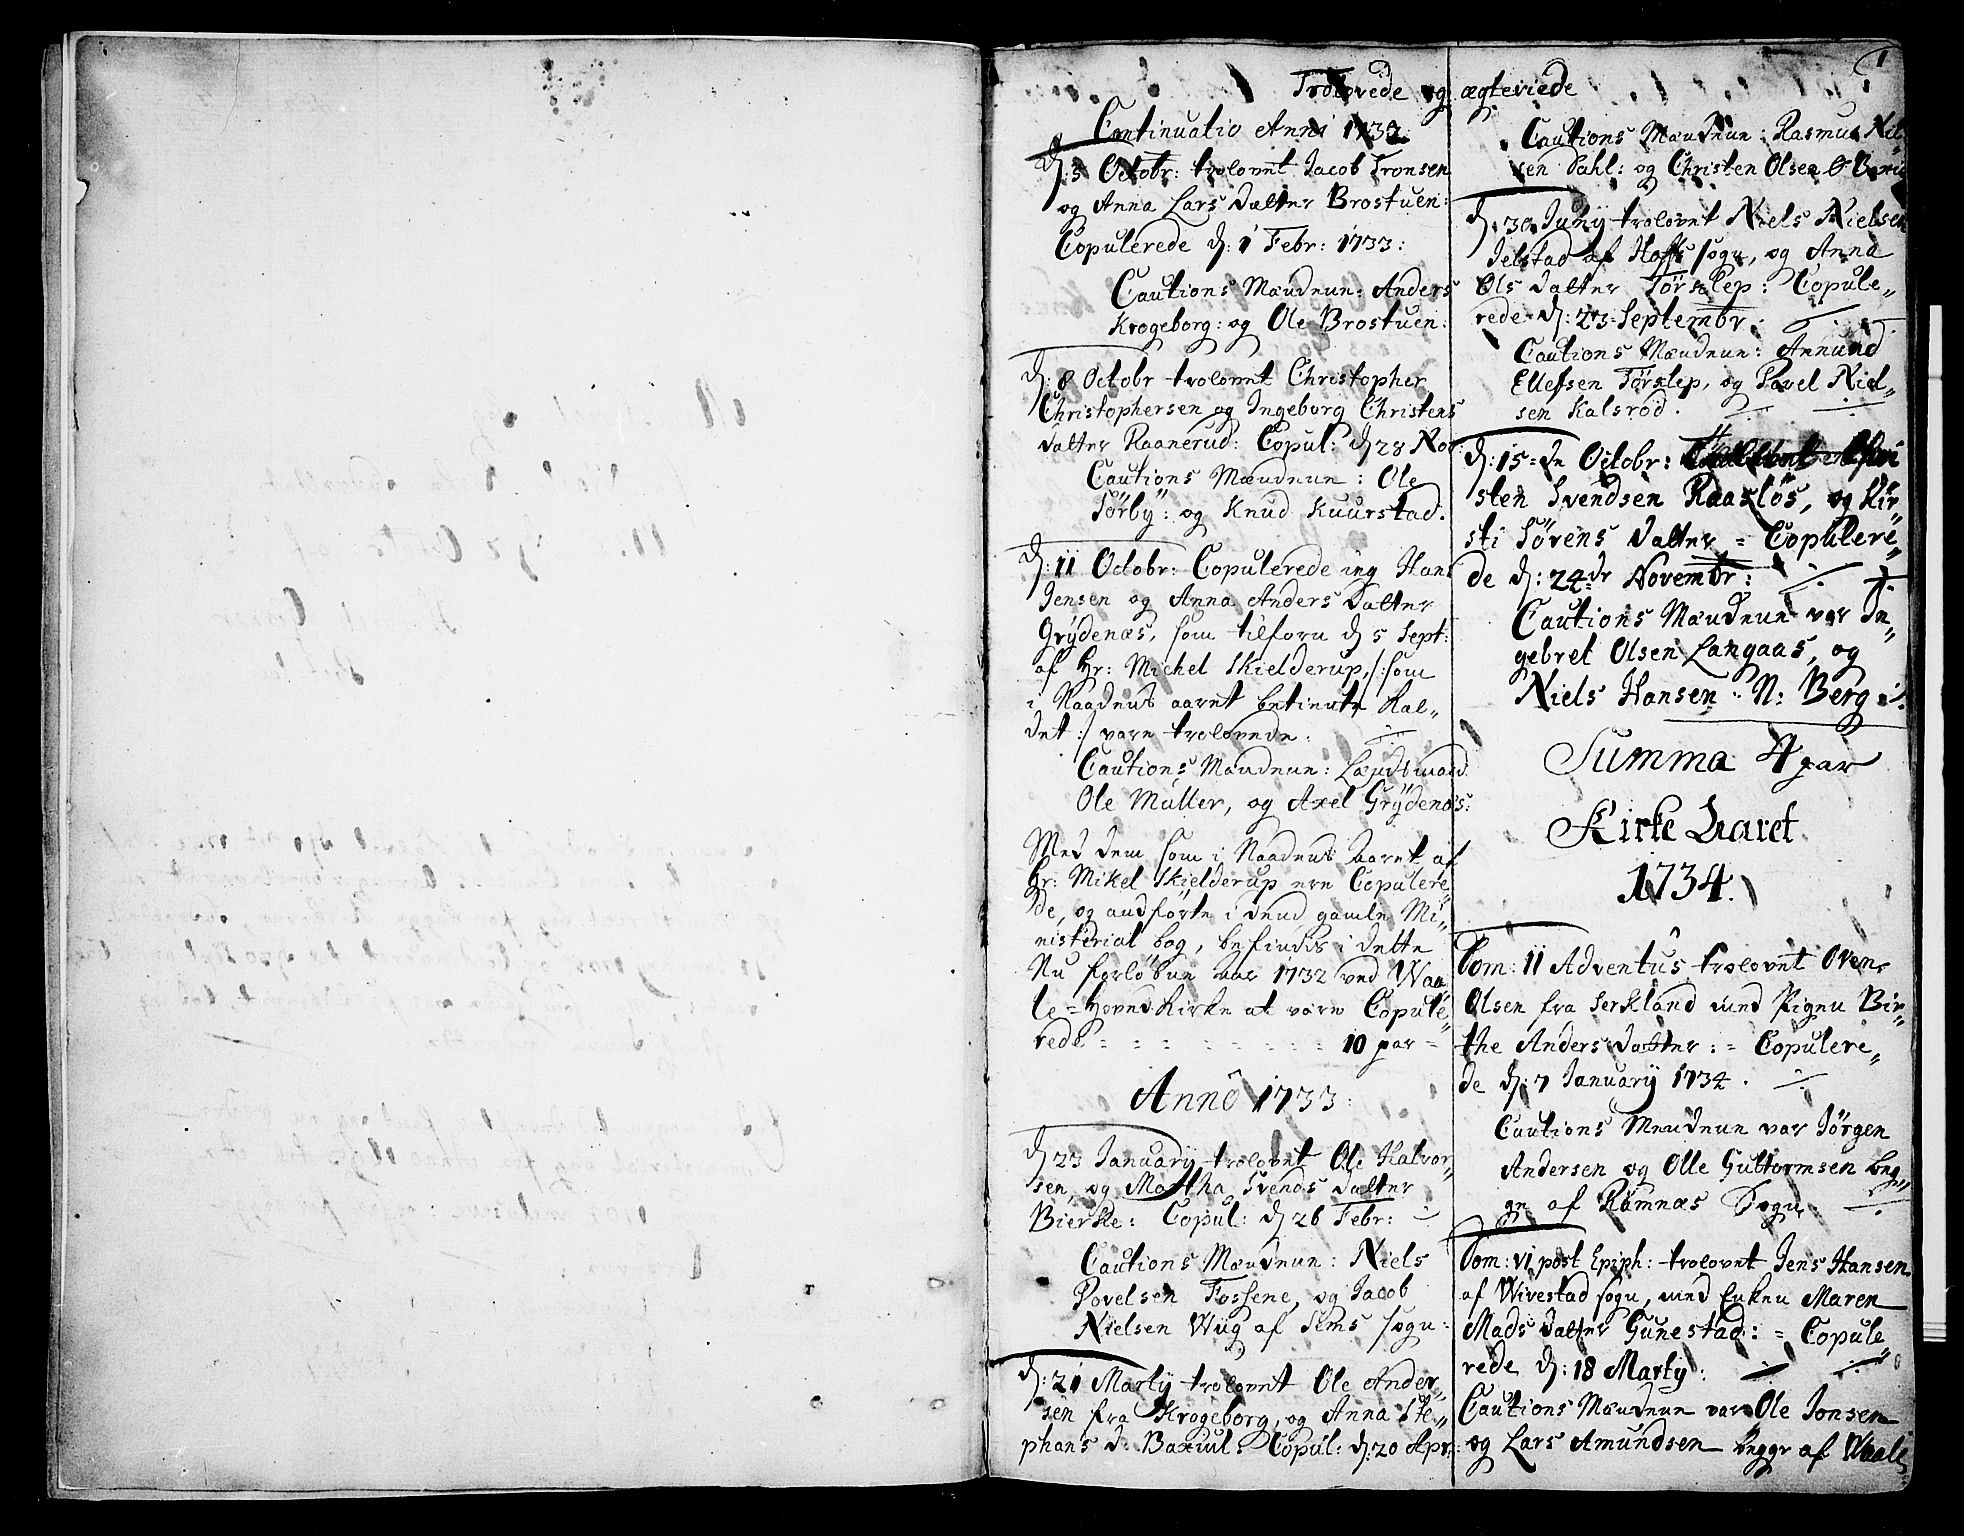 1
Trolovede og ægteviede
Continuatio Anni 1732
D: 5 Octobr: trolovet Jacob Tronsen
og Anna Lars Datter Brostuen:
Copulerede d: 1 Febr: 1733:
Cautions Mændene: Anders
Krogeborg: og Ole Brostuen:
D: 8 Octobr trolovet Christopher
Christophersen og Ingeborg Christens
Datter Raanerud: Copul: d 28 Nov:
Cautions Mændene: Ole
Törbÿ: og Knud Kuurstad.
D: 11 Octobr: Copulerede ieg Hans
Jensen og Anna Anders Datter
Grÿdenæs, som tilforn d 5 Sept:
af Hr: Michel Skielderup, /: som
i Naadens aaret betiente Kal„
det :/ vare trolovede.
Cautions Mændene: Lændsmand
Ole Muller, og Axel Grÿdenæs:
Med dem som i Naadens Aaret af
Hr: Mikel Skielderup ere Copulere„
de, og andförte i dend gamle Mi„
nisterial bog, befindis i dette
Nu forlöbne aar 1732 ved Waa„
le = Hoved Kirke at være Copule„
rede 10 par
Anno 1733
D 23 Januarÿ trolovet Ole Halvor„
sen, og Martha Svends Datter
Bierke: Copul: d 26 Febr:
Cautions Mændene: Niels
Povelsen Fossene, og Jacob
Nielsen Wiig af Sems sogn:
D: 21 Martÿ trolovet Ole Ander„
sen fra Krogeborg, og Anna Ste„
phans D: Copul: d: 20 Apr:
Cautions Mændene: Rasmus Nil„
sen Dahl: og Christen Olsen
D: 30 Junÿ trolovet Niels Nielsen
Jelstad af Hoffs sogn, og Anna
Ols Datter Törslep: Copule„
rede d: 23 Septembr:
Cautions Mændene: Annund
Ellefsen Törslep, og Povel Niel„
sen Kalsrod.
D: 15 = de Octobr: Chri
sten Svendsen Raaslös, og Kir„
sti Sörens Datter = Copulere„
de d: 24 de Novembr:
Cautions Mændene var In„
gebret Olsen Langaas, og
Niels Hansen N: Berg
Summa 4 par
Kirke Aaret
1734.
Dom: II Adventus trolovet Oven
Olsen fra Serkland med Pigen Bir„
the Anders Datter: = Copulere„
de d: 7 Januarÿ 1734.
Cautions Mændene var Jörgen
Andersen og Olle Guttormsen beg„
ge af Ramnæs Sogn
Dom: VI post Epiph: trolovet Jens Hansen
af Wivestad sogn, med Enken Maren
Mads Datter Gunestad: = Copule„
rede d: 18 Martÿ:
Cautions Mændene var Ole Jonsen
og Lars Amundsen begge af Waale